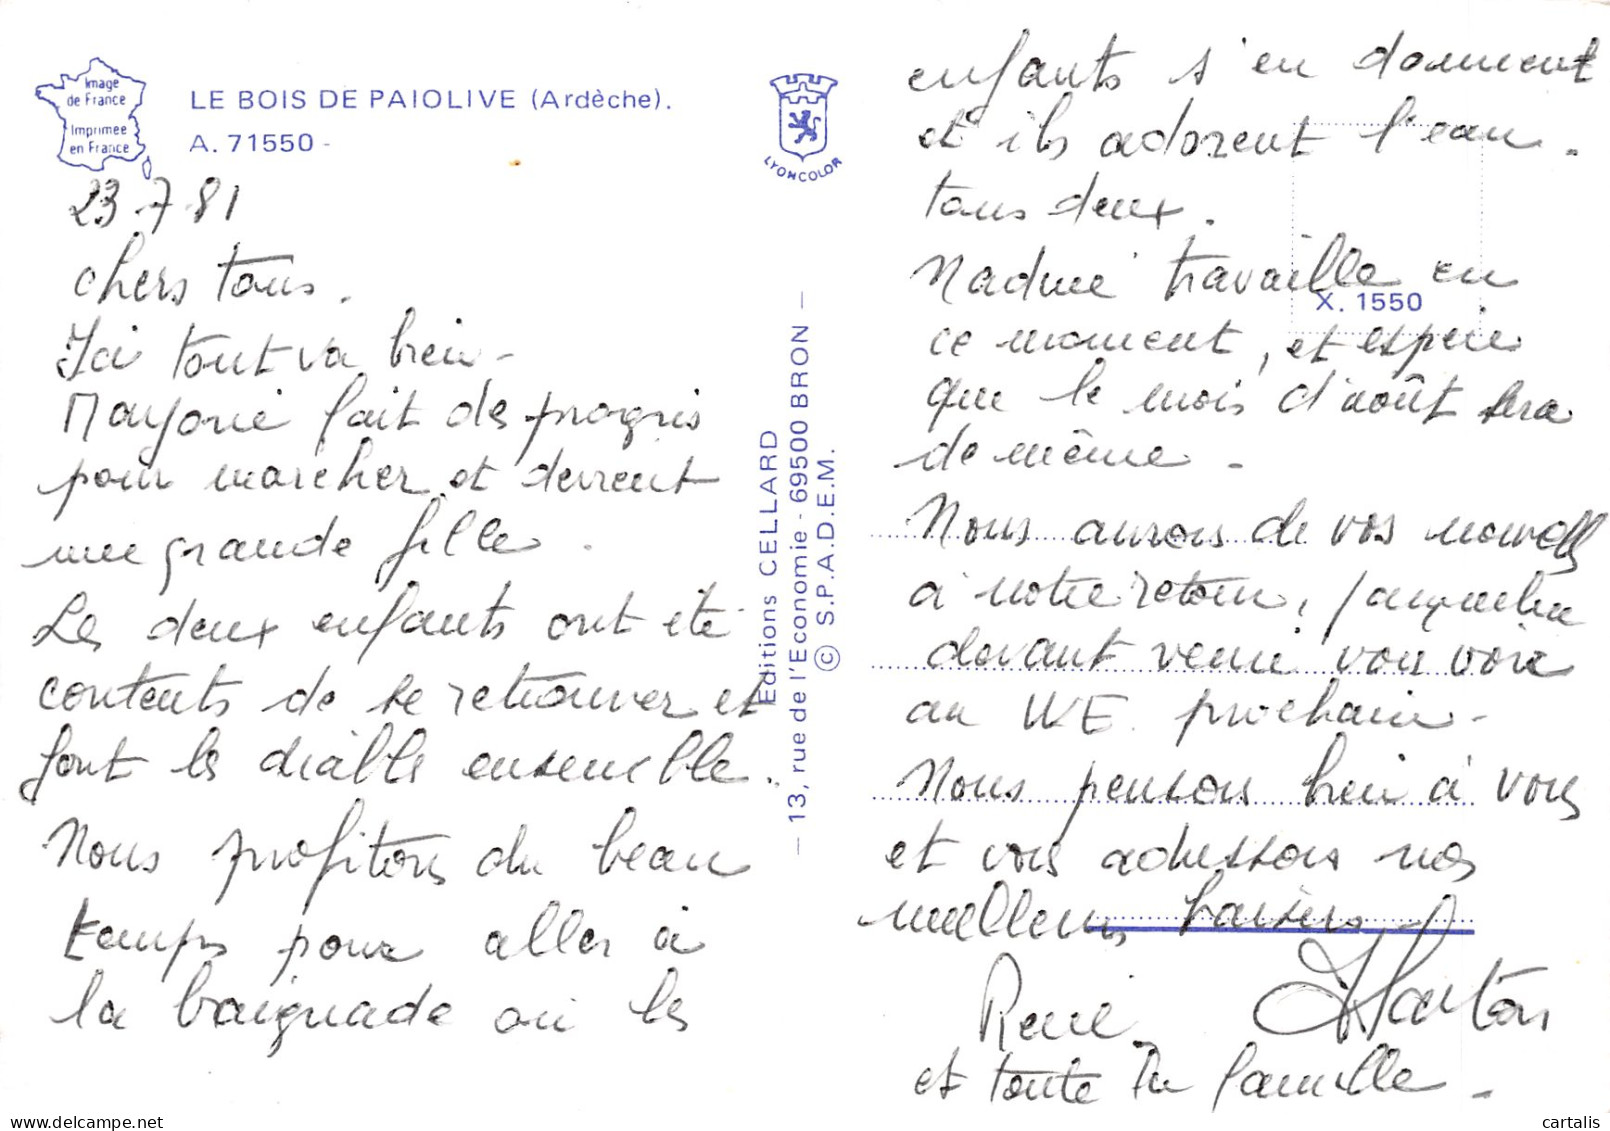 Image
de France
Imprimée
en France
LE BOIS DE PAIOLIVE (Ardèche).
A. 71550 -
LYONCOLOR
23.7.81
Chers tous.
Ici tout va bien -
Marjorie fait des progrès
pour marcher et devient
une grande fille.
Les deux enfants ont été
contents de se retrouver et
font le diable ensemble.
Nous profitons du beau
temps pour aller à
la baignade où les
Editions CELLARD
— 13, rue de l'Economie - 69500 BRON —
© S.P.A.D.E.M.
enfants s'en donnent
et ils adorent l'eau.
tous deux.
Nadine travaille en
X. 1550
ce moment, et espère
que le mois d'août sera
de même -
Nous aurons de vos nouvelles
à notre retour, Jacqueline
devant venir vous voir
au W.E. prochain -
Nous pensons bien à vous
et vous adressons nos
meilleurs baisers
René
et toute la famille -